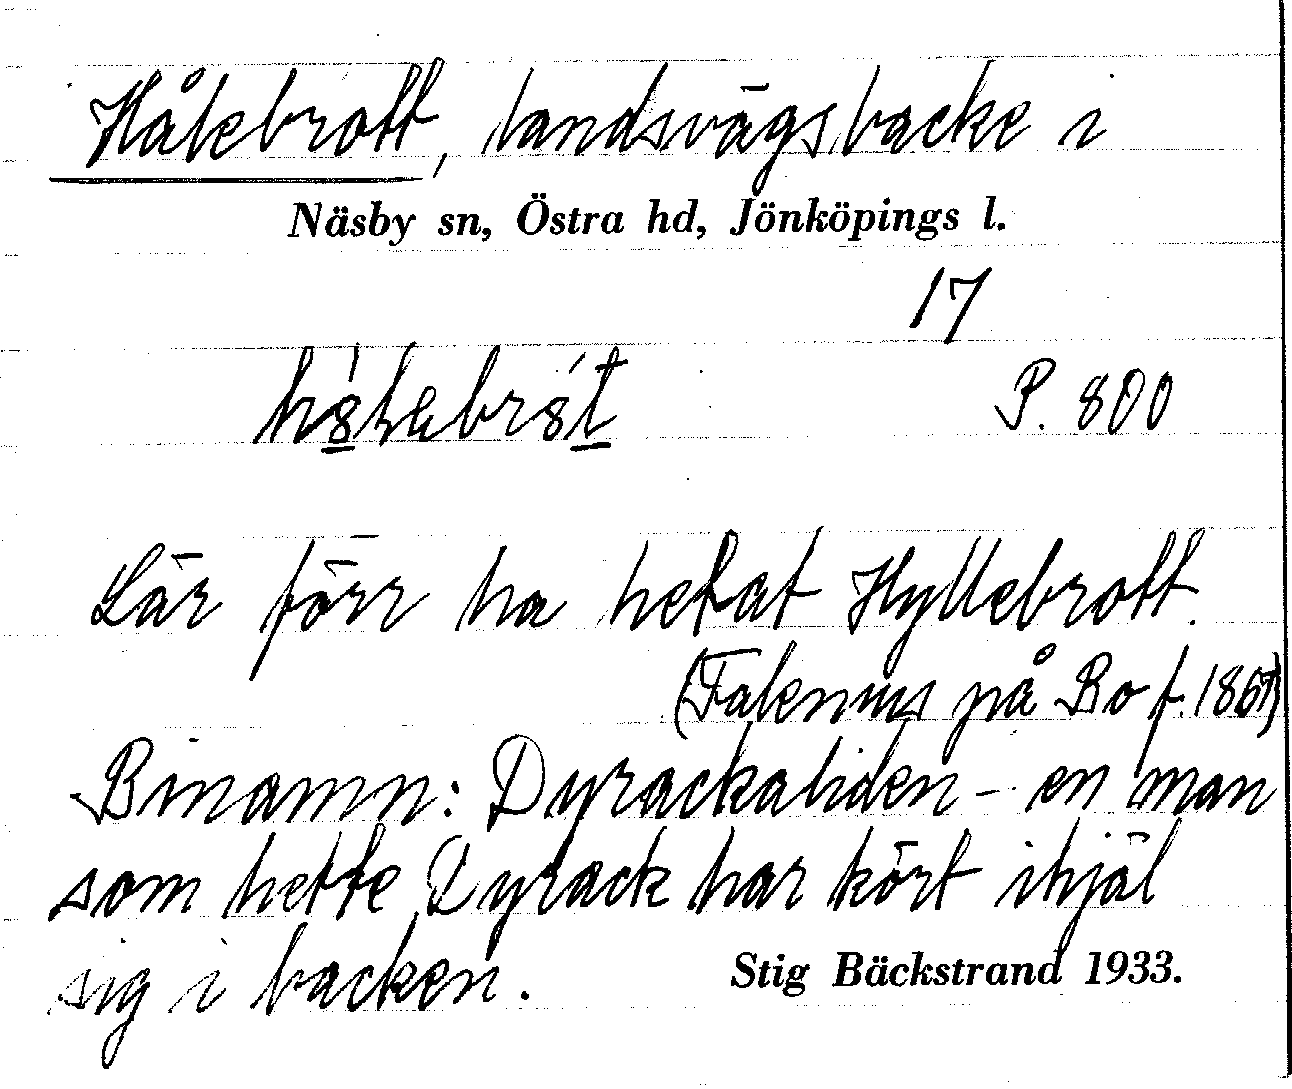 Hålebrott, landsvägsbacke i
Näsby sn, Östra hd, Jönköpings l.
17
P. 800
Lär förr ha hetat Hyllebrott.
(Falenius på Bo f. 1867)
Binamn: Dyrackaliden – en man
som hette Dyrack har kört ihjäl
sig i backen.
Stig Bäckstrand 1933.